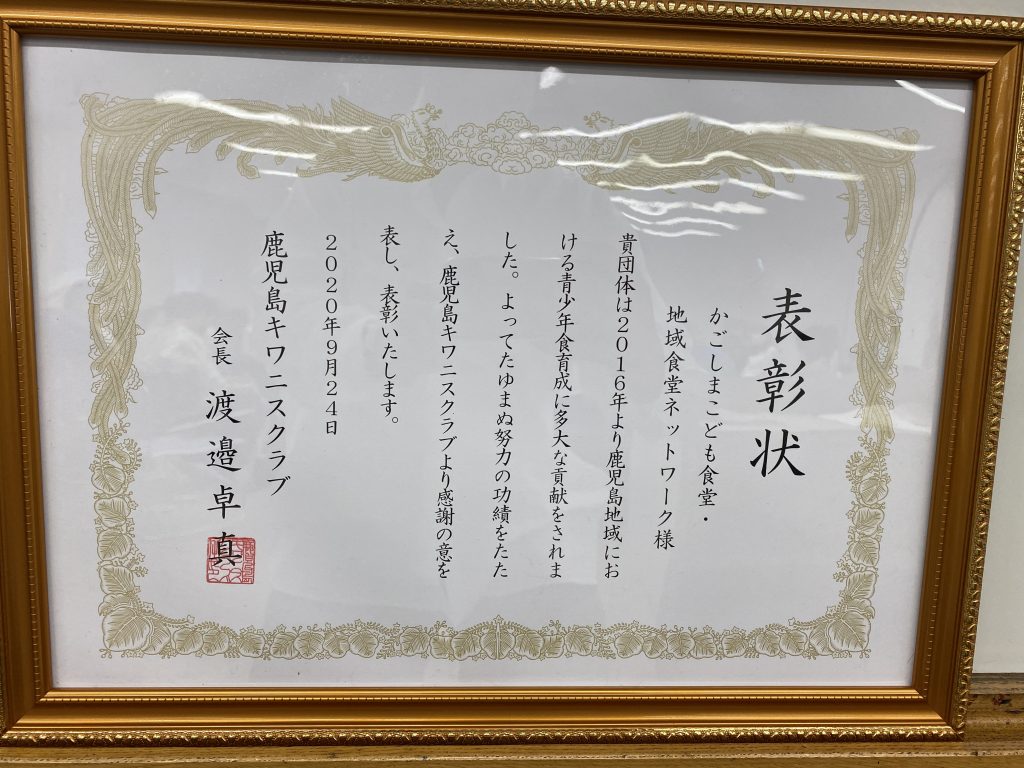 表彰状
かごしまこども食堂・
地域食堂ネットワーク様
貴団体は2016年より鹿児島地域にお
ける青少年食育成に多大な貢献をされま
した。よってたゆまぬ努力の功績をたた
え、鹿児島キワニスクラブより感謝の意を
表し、表彰いたします。
2020年9月24日
鹿児島キワニスクラブ
会長 渡邉卓真